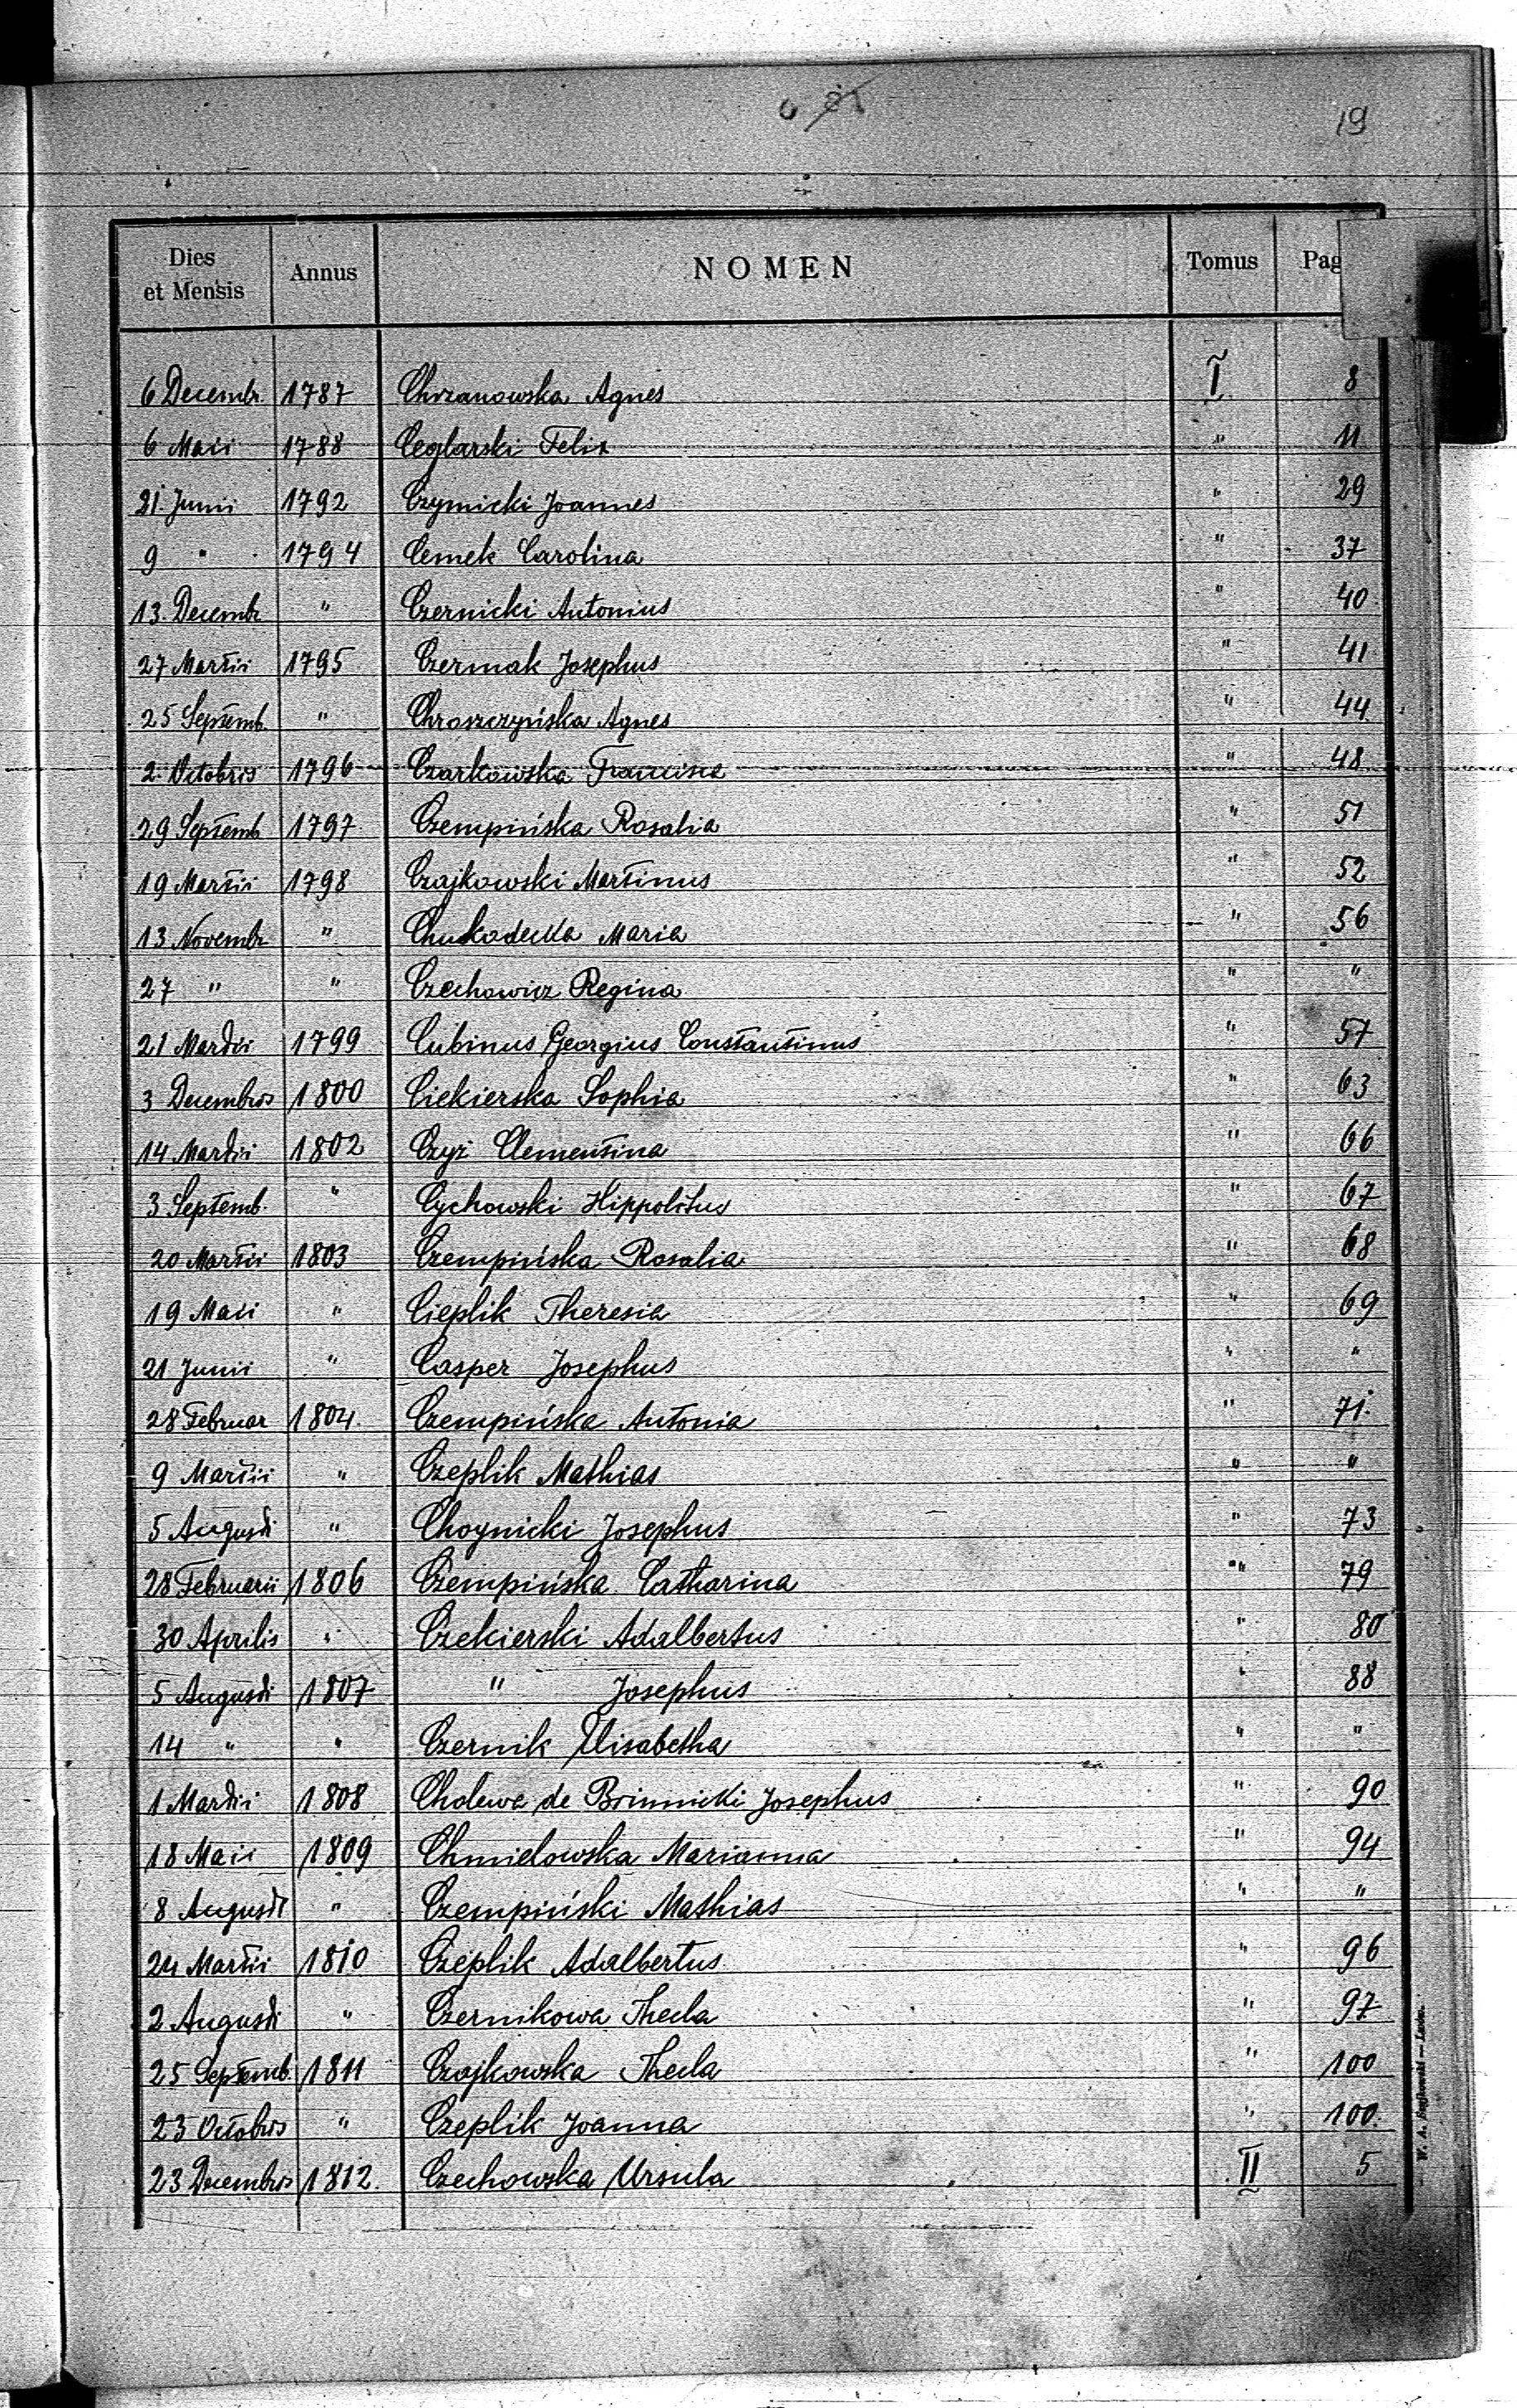 19
Dies et Mensis Annus NOMEN Tomus Pag
6 Decembr. 1787 Chrzanowska Agnes I 8
6 Maii 1788 Ceglarski Felix " 11
21 Junii 1792 Czymicki Joannes " 29
9 " 1794 Cemek Carolina " 37
13. Decembr " Czernicki Antonius " 40
27 Martii 1795 Czermak Josephus " 41
25 Septemb. " Chroszczyńska Agnes " 44
2. Octobris 1796 Czarkowska Francisca " 48
29 Septemb 1797 Czempińska Rosalia " 51
19 Martii 1798 Czajkowski Martinus " 52
13 Novembr " Maria " 56
27 " " Czechowicz Regina " "
21 Martii 1799 Cubinus Georgius Constantinus " 57
3 Decembris 1800 Ciekierska Sophia " 63
14 Martii 1802 Czyż Clementina " 66
3 Septemb. " Cychowski Hippolitus " 67
20 Martii 1803 Czempińska Rosalia " 68
19 Maii " Cieplik Theresia " 69
21 Junii " Casper Josephus " "
28 Februar 1804. Czempińska Antonia " 71.
9 Martii " Czeplik Mathias " "
5 Augusti " Choynicki Josephus " 73
28 Februarii 1806 Czempińska Catharina " 79
30 Aprilis " Czekierski Adalbertus " 80
5 Augusti 1807 " Josephus " 88
14 " " Czernik Elisabetha " "
1 Martii 1808 Cholewa de Brinnicki Josephus " 90
18 Maii 1809 Chmielowska Marianna " 94
8 Augusti " Czempiński Mathias " "
24 Martii 1810 Czeplik Adalbertus " 96
2 Augusti " Czernikowa Thecla " 97
25 Septemb. 1811 Czajkowska Thecla " 100
23 Octobris " Czeplik Joanna " 100.
23 Decembris 1812. Czechowska Ursula II 5